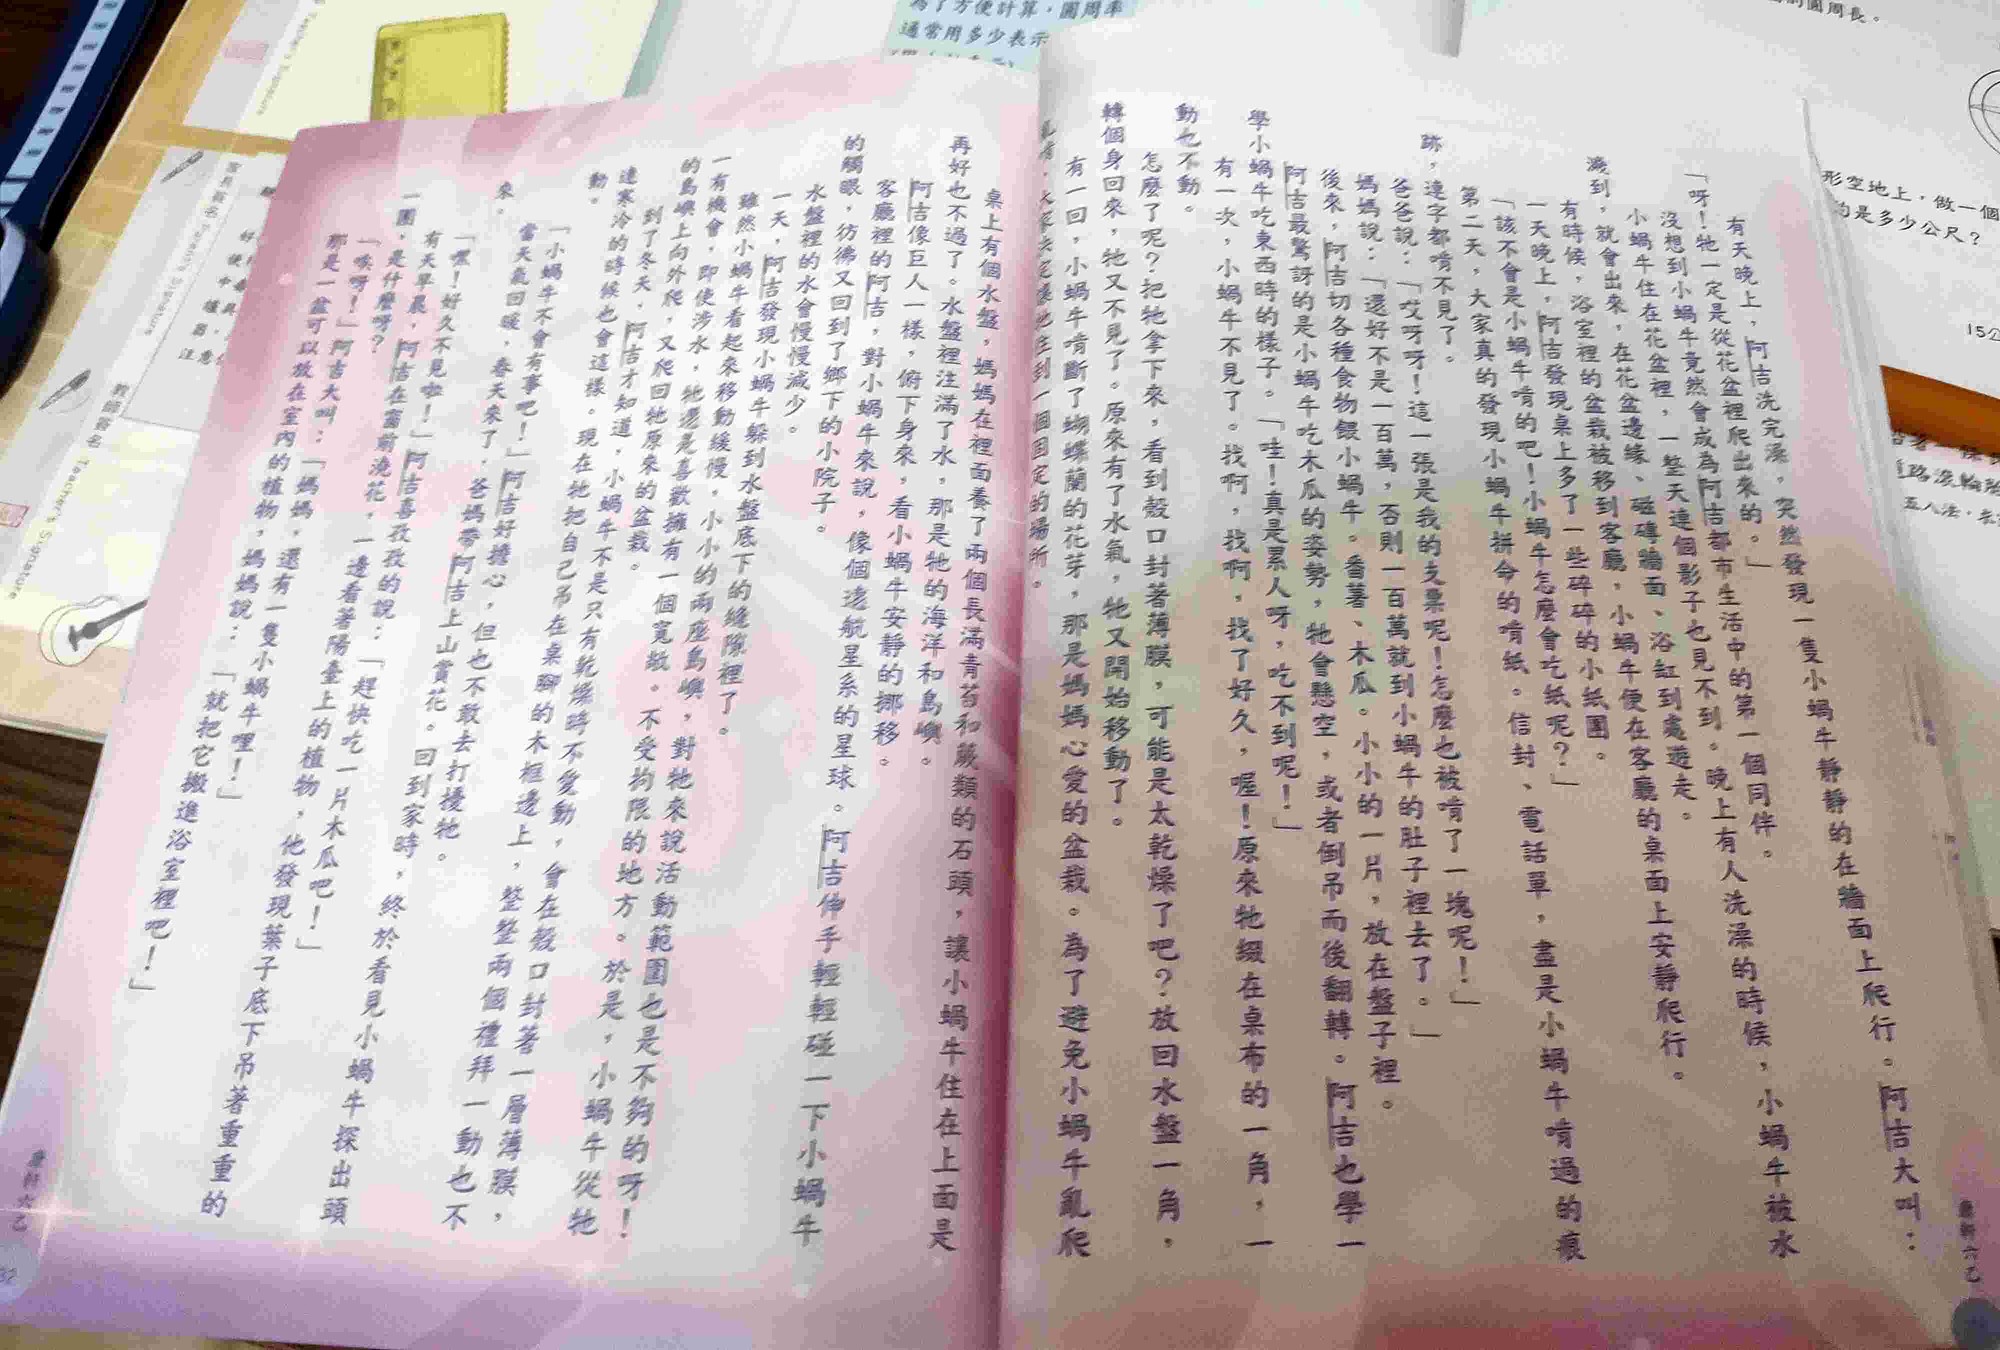 有天晚上，阿吉洗完澡，突然發現一隻小蝸牛靜靜的在牆面上爬行。阿吉大叫：
「呀！牠一定是從花盆裡爬出來的。」
沒想到小蝸牛竟然會成為阿吉都市生活中的第一個同伴。
小蝸牛住在花盆裡，一整天連個影子也見不到。晚上有人洗澡的時候，小蝸牛被水
濺到，就會出來，在花盆邊緣、磁磚牆面、浴缸到處遊走。
有時候，浴室裡的盆栽被移到客廳，小蝸牛便在客廳的桌面上安靜爬行。
一天晚上，阿吉發現桌上多了一些碎碎的小紙團。
「該不會是小蝸牛啃的吧！小蝸牛怎麼會吃紙呢？」
第二天，大家真的發現小蝸牛拼命的啃紙。信封、電話單，盡是小蝸牛啃過的痕
跡，連字都啃不見了。
爸爸說：「哎呀呀！這一張是我的支票呢！怎麼也被啃了一塊呢！」
媽媽說：「還好不是一百萬，否則一百萬就到小蝸牛的肚子裡去了。」
後來，阿吉切各種食物餵小蝸牛。番薯、木瓜。小小的一片，放在盤子裡。
阿吉最驚訝的是小蝸牛吃木瓜的姿勢，牠會懸空，或者倒吊而後翻轉。阿吉也學一
學小蝸牛吃東西時的樣子。「哇！真是累人呀，吃不到呢！」
有一次，小蝸牛不見了。找啊，找啊，找了好久，喔！原來牠綴在桌布的一角，一
動也不動。
怎麼了呢？把牠拿下來，看到殼口封著薄膜，可能是太乾燥了吧？放回水盤一角，
轉個身回來，牠又不見了。原來有了水氣，牠又開始移動了。
有一回，小蝸牛啃斷了蝴蝶蘭的花芽，那是媽媽心愛的盆栽。為了避免小蝸牛亂爬
亂啃，大家決定讓牠住到一個固定的場所。
桌上有個水盤，媽媽在裡面養了兩個長滿青苔和蕨類的石頭，讓小蝸牛住在上面是
再好也不過了。水盤裡注滿了水，那是牠的海洋和島嶼。
阿吉像巨人一樣，俯下身來，看小蝸牛安靜的挪移。
客廳裡的阿吉，對小蝸牛來說，像個遠航星系的星球。阿吉伸手輕輕碰一下小蝸牛
的觸眼，彷彿又回到了鄉下的小院子。
水盤裡的水會慢慢減少。
一天，阿吉發現小蝸牛躲到水盤底下的縫隙裡了。
雖然小蝸牛看起來移動緩慢，小小的兩座島嶼，對牠來說活動範圍也是不夠的呀！
一有機會，即使涉水，牠還是喜歡擁有一個寬敞。不受拘限的地方。於是，小蝸牛從牠
的島嶼上向外爬，又爬回牠原來的盆栽。
到了冬天，阿吉才知道，小蝸牛不是只有乾燥時不愛動，會在殼口封著一層薄膜，
連寒冷的時候也會這樣。現在牠把自己吊在桌腳的木框邊上，整整兩個禮拜一動也不
動。
「小蝸牛不會有事吧！」阿吉好擔心，但也不敢去打擾牠。
當天氣回暖，春天來了，爸媽帶阿吉上山賞花。回到家時，終於看見小蝸牛探出頭
來。
「嘿！好久不見啦！」阿吉喜孜孜的說：「趕快吃一片木瓜吧！」
有天早晨，阿吉在窗前澆花，一邊看著陽臺上的植物，他發現葉子底下吊著重重的
一團，是什麼呀？
「唉呀！」阿吉大叫：「媽媽，還有一隻小蝸牛哩！」
那是一盆可以放在室內的植物，媽媽說：「就把它搬進浴室裡吧！」
康軒六乙
康軒六乙
32
為了方便計算，圓周率
通常用多少表示
圓周長。
形空地上，做一個
約是多少公尺？
15公
教師簽名 Teacher's Signature